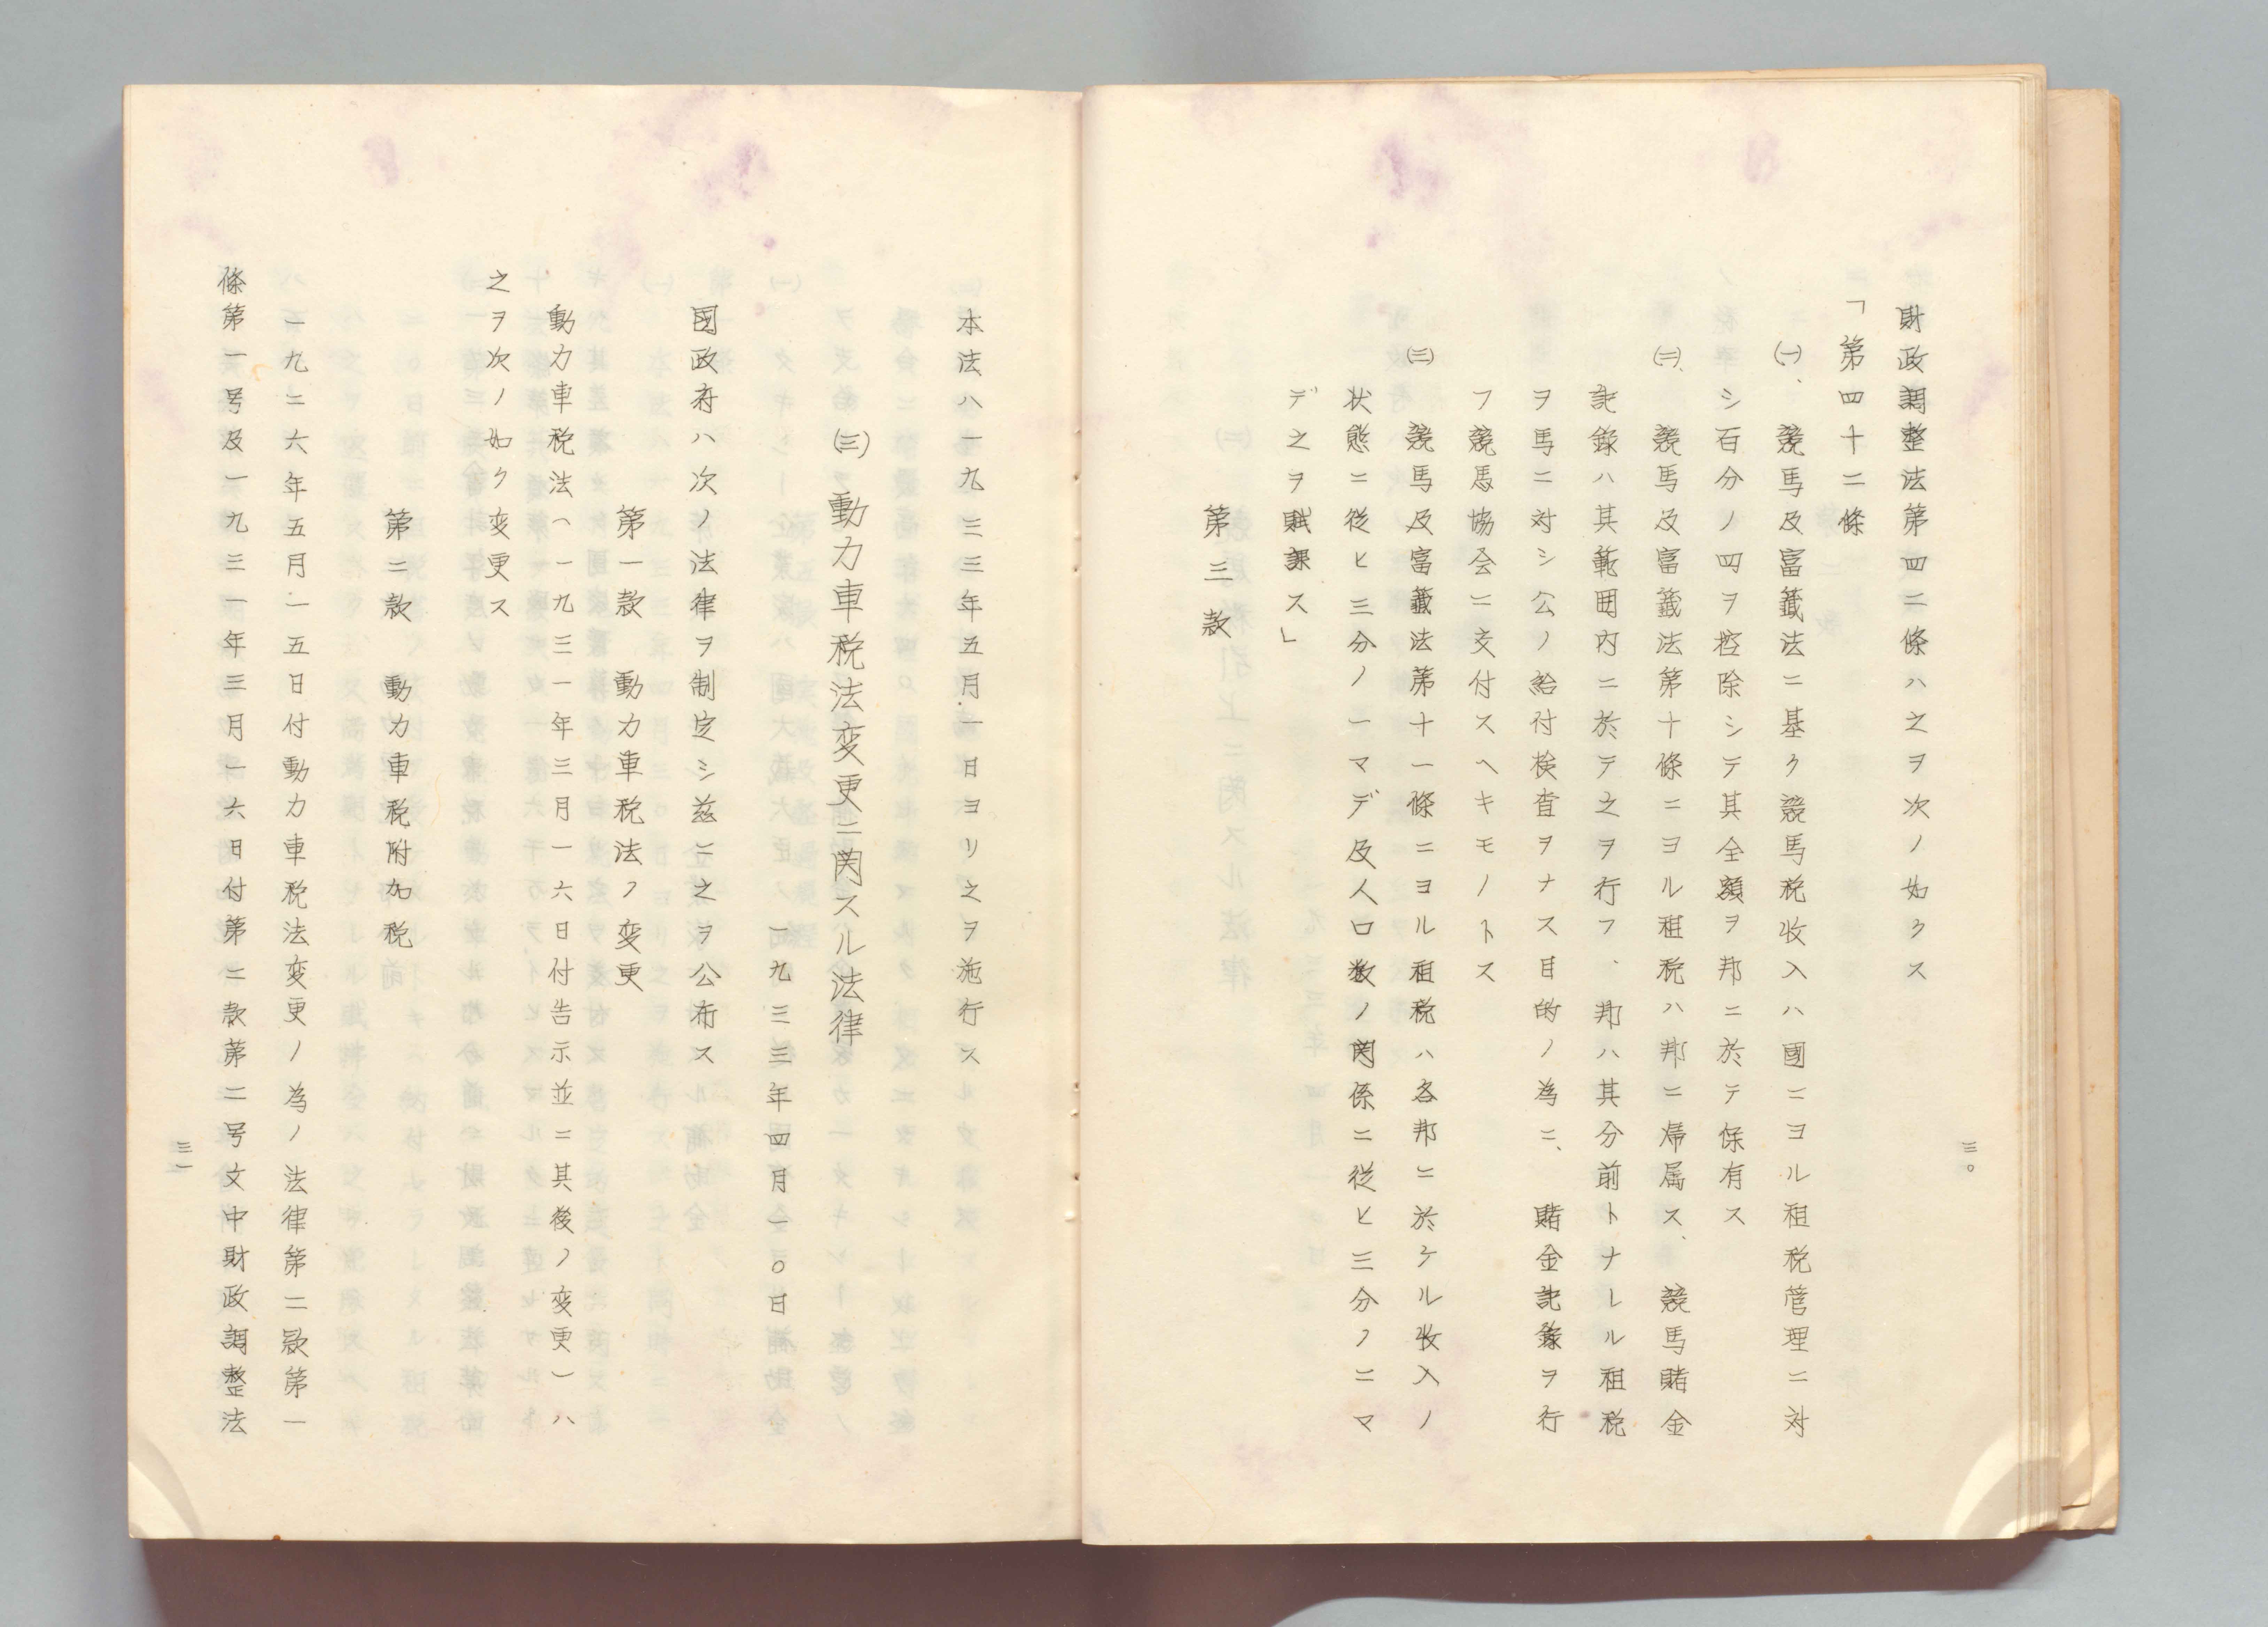 財政調整法第四二條ハ之ヲ次ノ如クス
「第四十二條
(一)、競馬及富籤法ニ基ク競馬税收入ハ國ニヨル租税管理ニ対
シ百分ノ四ヲ控除シテ其全額ヲ邦ニ於テ保有ス
(二)、競馬及富籤法第十條ニヨル租税ハ邦ニ帰属ス、競馬賭金
記録ハ其範囲内ニ於テ之ヲ行フ、邦ハ其分前トナレル租税
ヲ馬ニ対シ公ノ給付検査ヲナス目的ノ為ニ、賭金記録ヲ行
フ競馬協会ニ交付スヘキモノトス
(三)競馬及富籤法第十一條ニヨル租税ハ各邦ニ於ケル收入ノ
状態ニ従ヒ三分ノ一マデ及人口数ノ関係ニ従ヒ三分ノ二マ
デ之ヲ賦課ス」
第三款
三〇
本法ハ一九三三年五月一日ヨリ之ヲ施行ス
(三)動力車税法変更ニ関スル法律
一九三三年四月一〇日
国政府ハ次ノ法律ヲ制定シ茲ニ之ヲ公布ス
第一款 動力車税法ノ変更
動力車税法(一九三一年三月一六日付告示並ニ其後ノ変更)ハ
之ヲ次ノ如ク変更ス
第二款 動力車税附加税
一九二六年五月一五日付動力車税法変更ノ為ノ法律第二款第一
條第一号及一九三一年三月一六日付第二款第二号文中財政調整法
三一